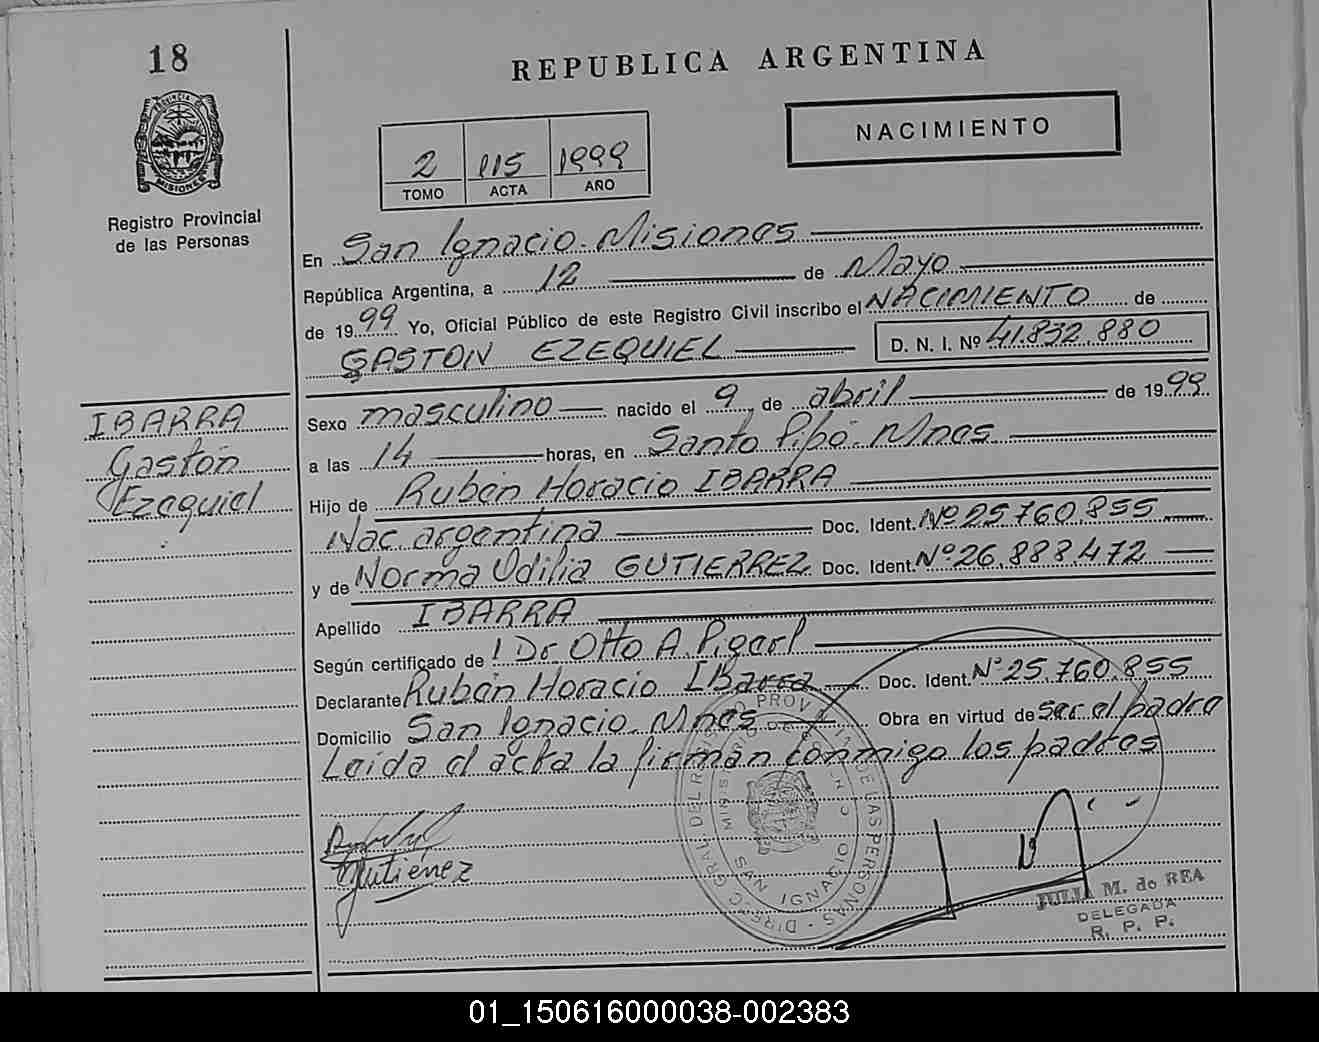 18
REPUBLICA ARGENTINA
NACIMIENTO
2 115 1999
TOMO ACTA AÑO
PROVINCIA DE MISIONES
Registro Provincial
de las Personas
En San Ignacio. Misiones
República Argentina, a 12 de Mayo
de 1999 Yo, Oficial Público de este Registro Civil inscribo el NACIMIENTO de
GASTON EZEQUIEL D. N. I. Nº 41.832.880
IBARRA
Gastón
Ezequiel
Sexo masculino nacido el 9 de abril de 1999
a las 14 horas, en Santo Pipó. Mnes
Hijo de Rubén Horacio IBARRA
Nac. argentina Doc. Ident. Nº 25.760.855
y de Norma Udilia GUTIERREZ Doc. Ident. Nº 26.888.472
Apellido IBARRA
Según certificado de Dr. Otto A.
Declarante Rubén Horacio IBarra Doc. Ident. Nº 25.760.855
Domicilio San Ignacio. Mnes Obra en virtud de ser el padre
Leída el acta la firman conmigo los padres
Gutiérrez
SAN IGNACIO
JULIA M. de REA
DELEGADA
R. P. P.
01_150616000038-002383